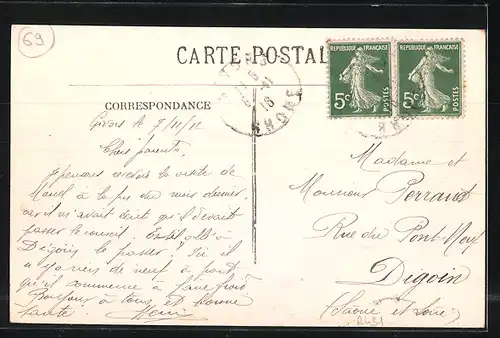 69
CARTE POSTALE
REPUBLIQUE FRANÇAISE
5c
POSTES
REPUBLIQUE FRANÇAISE
5c
POSTES
RHONE
CORRESPONDANCE
Givors le 7/11/12
Chers parents,
J'pensais recevoir la visite de
à la fin du mois dernier,
car il m'avait écrit qu'il devait
passer le conseil. Est-il allé à
Digoin le passer? Ici il
n'y a rien de neuf à part
qu'il commence à faire froid
Bonjour à tous, et bonne
santé. Henri
Madame et
Monsieur Perraud
Rue du Pont-Neuf
Digoin
(Saône et Loire)